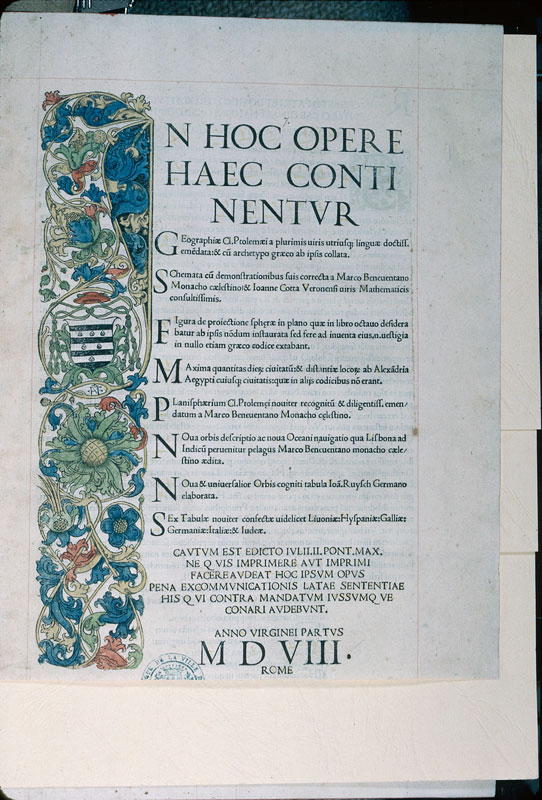 IN HOC OPERE
HAEC CONTI
NENTVR
GEographiæ Cl. Ptolemæi a plurimis uiris utriusq; linguæ doctiss.
emēdata: & cū archetypo græco ab ipsis collata.
SChemata cū demonstrationibus suis correcta a Marco Beneuentano
Monacho cælestino: & Ioanne Cotta Veronensi uiris Mathematicis
consultissimis.
FIgura de proiectione spheræ in plano quæ in libro octauo desidera
batur ab ipsis nōdum instaurata sed fere ad inuenta eius.n. uestigia
in nullo etiam græco codice extabant.
MAxima quantitas dierꝫ ciuitatū: & distantiæ locorꝫ ab Alexādria
Aegypti cuiusq; ciuitatis: quæ in alijs codicibus nō erant.
PLanisphærium Cl. Ptolemęi nouiter recognitū & diligentiss. emen/
datum a Marco Beneuentano Monacho cęlestino.
NOua orbis descriptio ac noua Oceani nauigatio qua Lisbona ad
Indicū peruenitur pelagus Marco Beneuentano monacho cæle/
stino ædita.
NOua & uniuersalior Orbis cogniti tabula Ioā. Ruysch Germano
elaborata.
SEx Tabulæ nouiter confectæ uidelicet Liuoniæ: Hyspaniæ: Galliæ:
Germaniæ: Italiæ: & Iudeæ.
CAVTVM EST EDICTO IVLII.II. PONT. MAX.
NE QVIS IMPRIMERE AVT IMPRIMI
FACERE AVDEAT HOC IPSVM OPVS
PENA EXCOMMVNICATIONIS LATAE SENTENTIAE
HIS QVI CONTRA MANDATVM IVSSVMQVE
CONARI AVDEBVNT.
ANNO VIRGINEI PARTVS
M D VIII.
ROME
DE LA VILLE